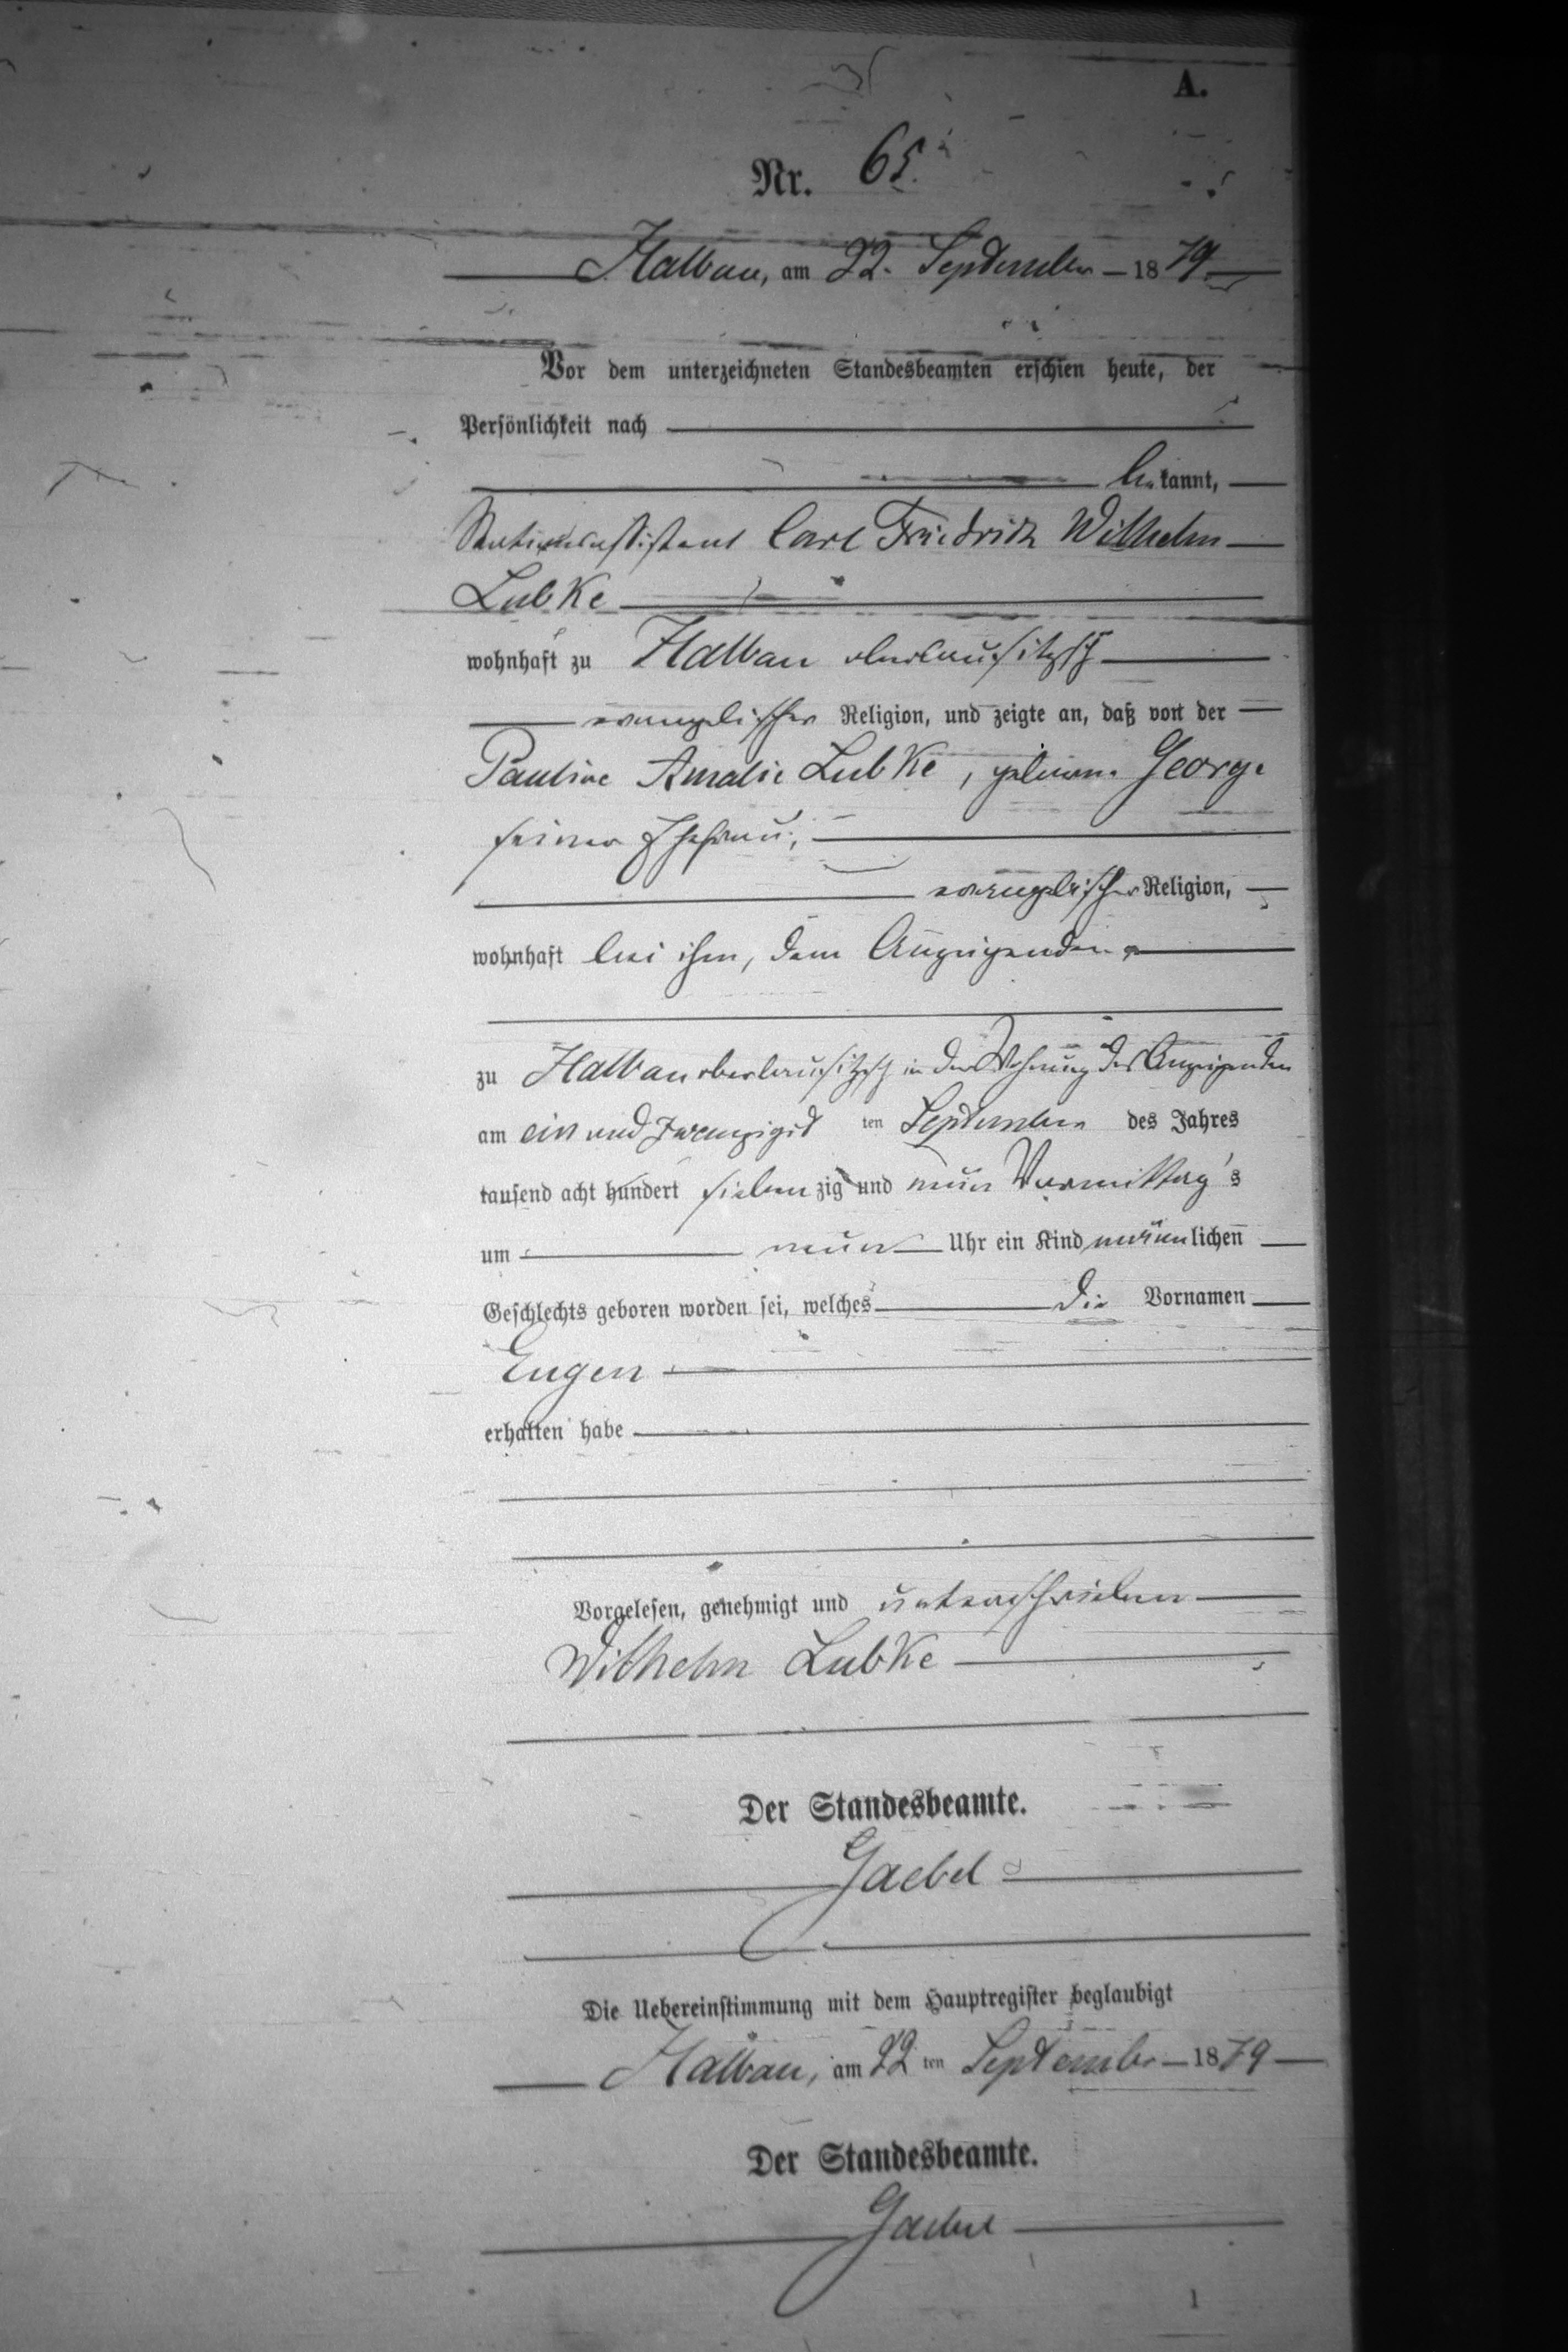 A.
Nr. 65.
Halbau, am 22. September 1879
Vor dem unterzeichneten Standesbeamten erschien heute, der
Persönlichkeit nach
bekannt,
Stationsassistent Carl Friedrich Wilhelm
Lubke
wohnhaft zu Halbau oberlausitzsch
evangelischer Religion, und zeigte an, daß von der
Pauline Amalie Lubke, geborene George
seiner Ehefrau,
evangelischer Religion,
wohnhaft bei ihm, dem Anzeigenden
zu Halbau oberlausitzsch in der Wohnung des Anzeigenden
am ein und zwanzigst ten September des Jahres
tausend acht hundert siebenzig und neun Vormittag's
um neun Uhr ein Kind männlichen
Geschlechts geboren worden sei, welches die Vornamen
Eugen
erhalten habe
Vorgelesen, genehmigt und unterschrieben
Wilhelm Lubke
Der Standesbeamte.
Gaebel
Die Uebereinstimmung mit dem Hauptregister beglaubigt
Halbau, am 22 ten September 1879
Der Standesbeamte.
Gaebel
1